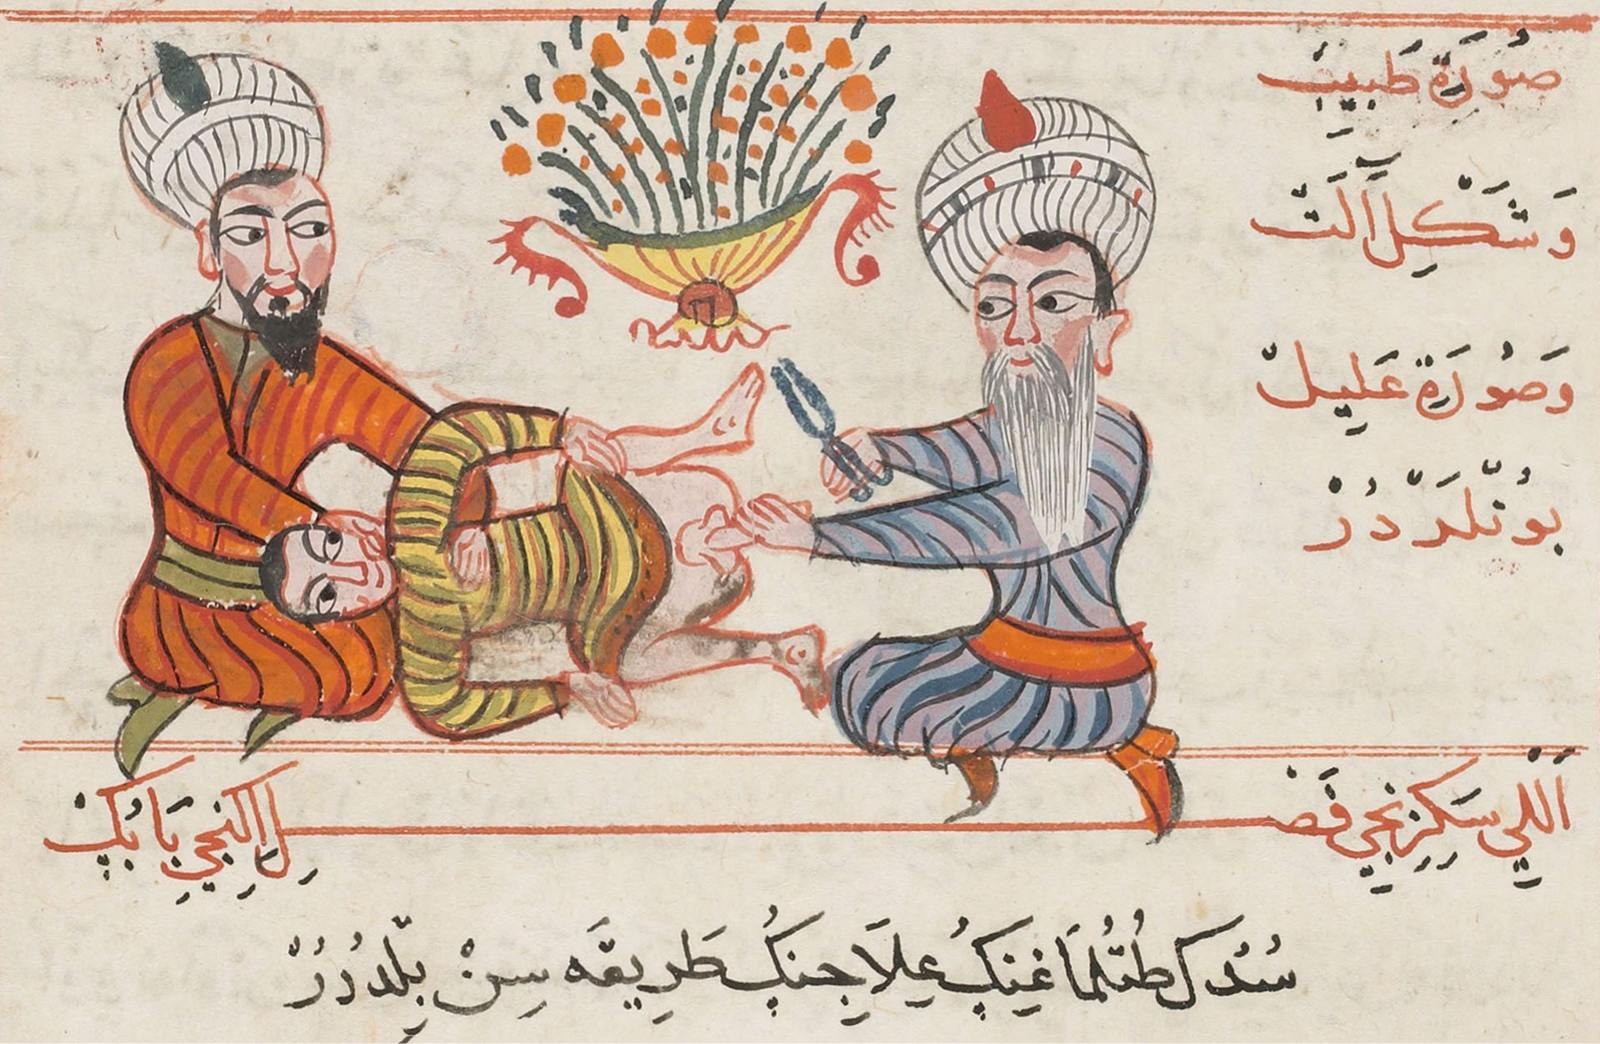 صُورَةِ طَبِيبْ
وَ شَكْلِ آلَتْ
وَصُورَةِ عَلِيلْ
بُونْلَرْدُرْ
اَللِي سَكِزِنْجِي فَصْلْ
اِيكِنْجِي بَابُكْ
سُدُكْ طُتُلْمَاغِنِكْ عِلَاجِنِكْ طَرِيقَه سِنْ بِلْدُرُرْ